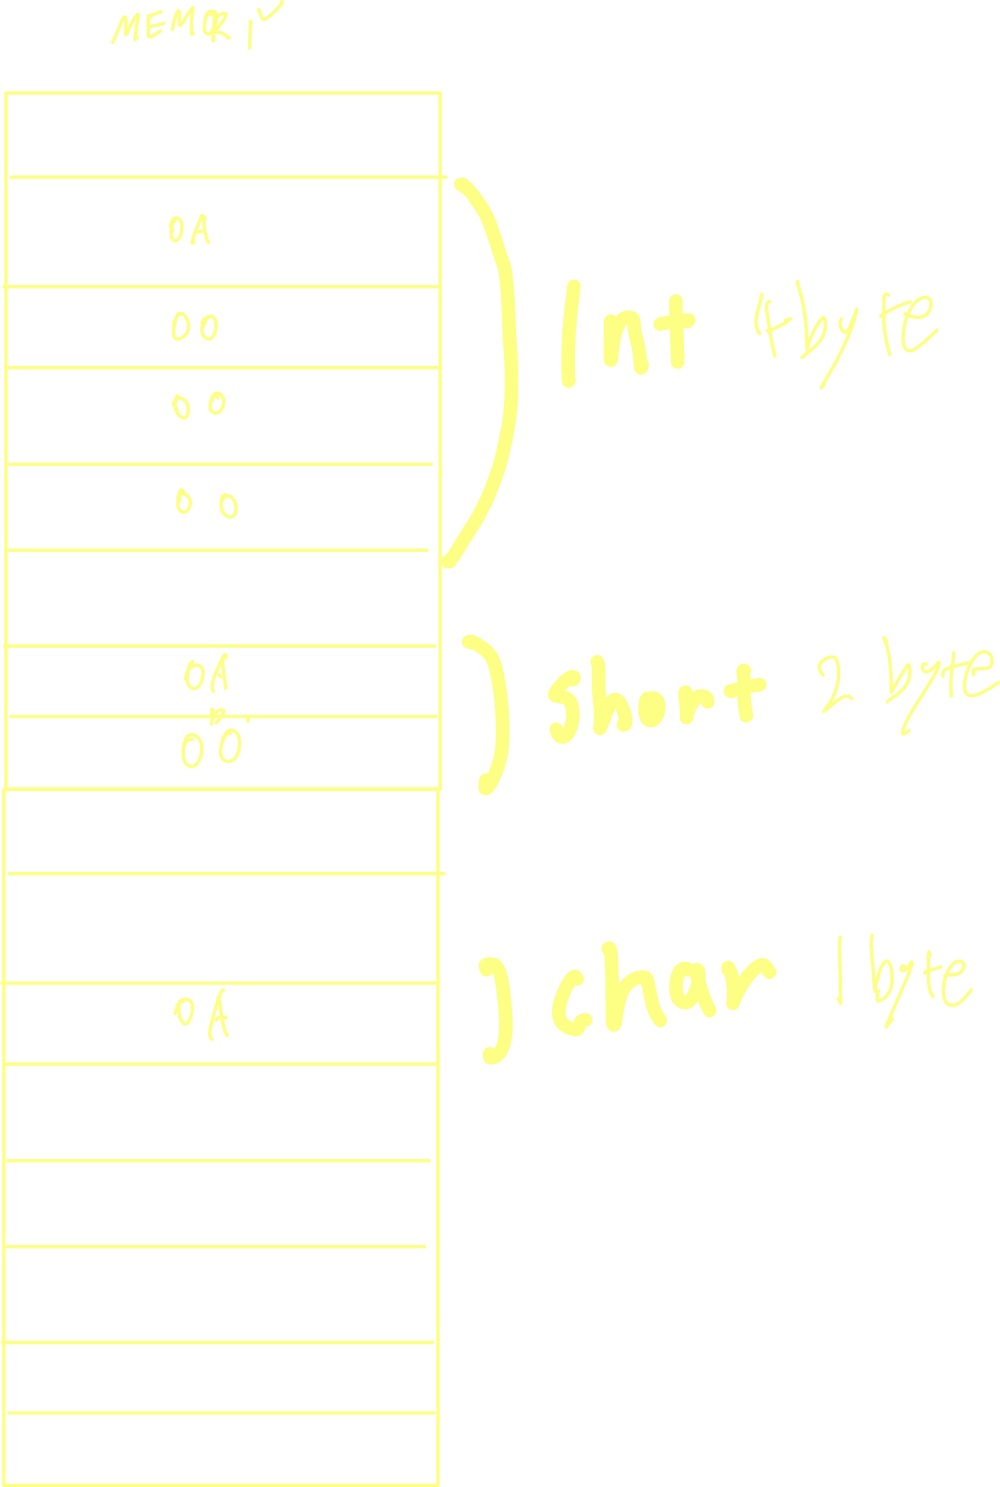 MEMORY
0A
00
Int 4byte
00
00
0A
short 2 byte
00
0A
char 1 byte